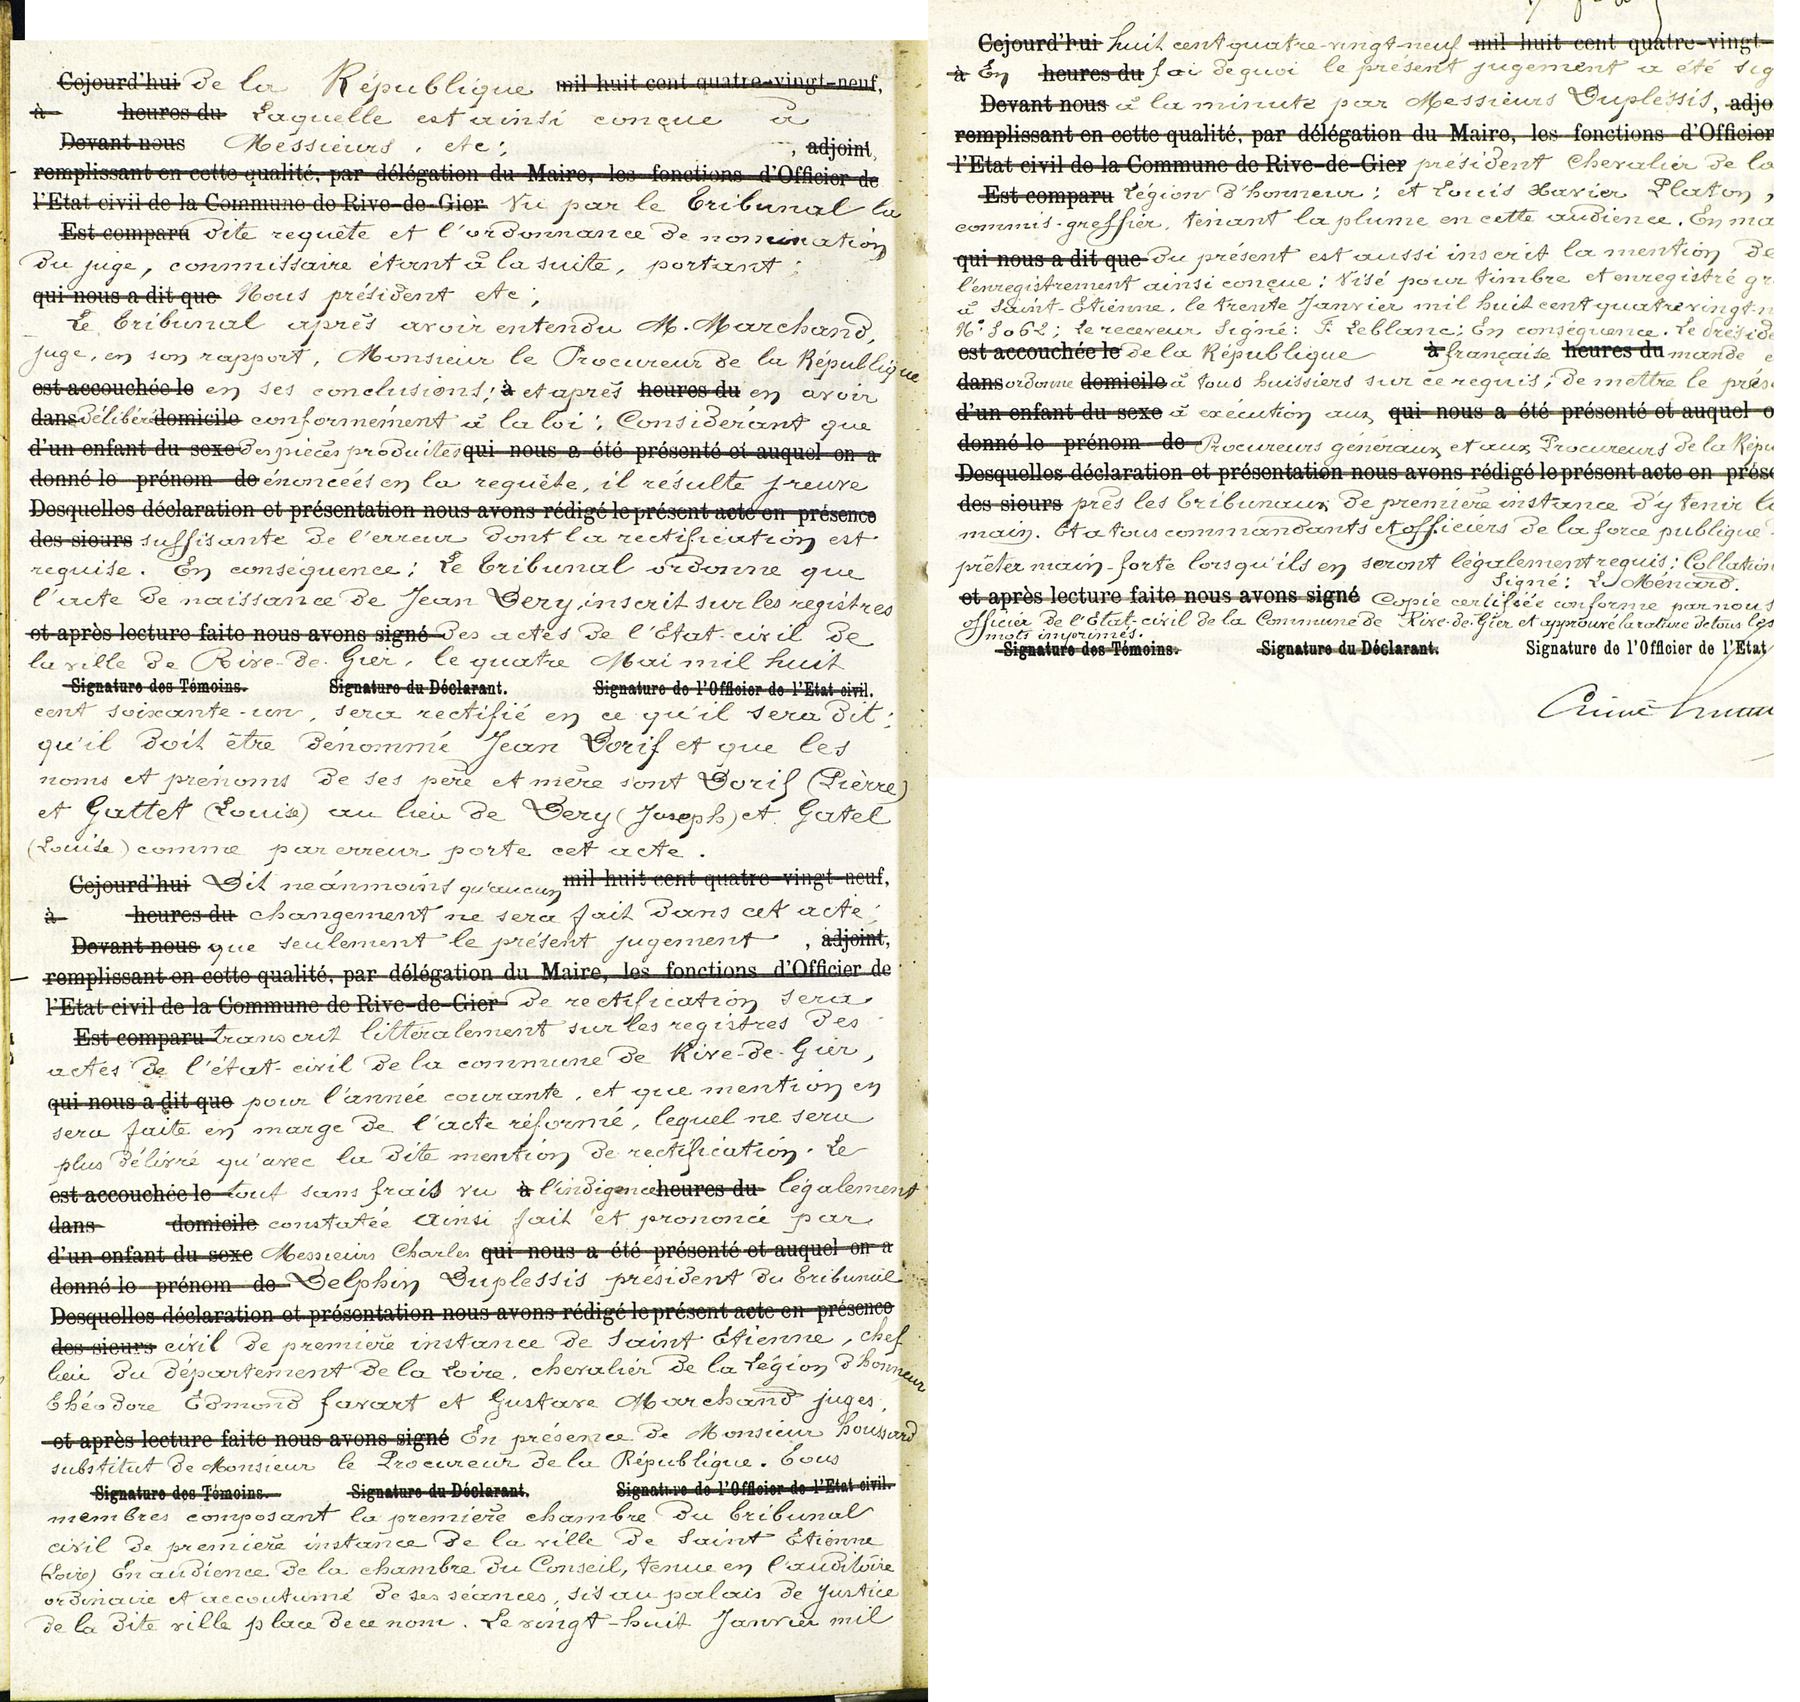 Cejourd'hui de la République mil huit cent quatre-vingt-neuf,
à heures du Laquelle est ainsi conçue à
Devant nous Messieurs, etc; , adjoint,
remplissant en cette qualité, par délégation du Maire, les fonctions d'Officier de
l'Etat civil de la Commune de Rive-de-Gier Vu par le Tribunal la
Est comparu dite requête et l'ordonnance de nomination
du juge, commissaire étant à la suite, portant;
qui nous a dit que Nous président etc;
Le Tribunal après avoir entendu M. Marchand,
juge, en son rapport, Monsieur le Procureur de la République
est accouchée le en ses conclusions; à et après heures du en avoir
dans délibéré domicile conformément à la loi; Considérant que
d'un enfant du sexe des pièces produites qui nous a été présenté et auquel on a
donné le prénom de énoncées en la requête, il résulte preuve
Desquelles déclaration et présentation nous avons rédigé le présent acte en présence
des sieurs suffisante de l'erreur dont la rectification est
requise. En conséquence; Le Tribunal ordonne que
l'acte de naissance de Jean Dery, inscrit sur les registres
et après lecture faite nous avons signé des actes de l'Etat-civil de
la ville de Rive-de-Gier, le quatre Mai mil huit
Signature des Témoins. Signature du Déclarant. Signature de l'Officier de l'Etat civil.
cent soixante-un, sera rectifié en ce qu'il sera dit;
qu'il doit être dénommé Jean Dorif et que les
noms et prénoms de ses père et mère sont Dorif (Pierre)
et Gattet (Louise) au lieu de Dery (Joseph) et Gatel
(Louise) comme par erreur porte cet acte.
Cejourd'hui Dit néanmoins qu'aucun mil huit cent quatre-vingt-neuf,
à heures du changement ne sera fait dans cet acte;
Devant nous que seulement le présent jugement , adjoint,
remplissant en cette qualité, par délégation du Maire, les fonctions d'Officier de
l'Etat civil de la Commune de Rive-de-Gier de rectification sera
Est comparu transcrit littéralement sur les registres des
actes de l'état-civil de la commune de Rive-de-Gier,
qui nous a dit que pour l'année courante, et que mention en
sera faite en marge de l'acte réformé, lequel ne sera
plus délivré qu'avec la dite mention de rectification. Le
est accouchée le tout sans frais vu à l'indigence heures du légalement
dans domicile constatée Ainsi fait et prononcé par
d'un enfant du sexe Messieurs Charles qui nous a été présenté et auquel on a
donné le prénom de Delphin Duplessis président du Tribunal
Desquelles déclaration et présentation nous avons rédigé le présent acte en présence
des sieurs civil de première instance de Saint Etienne, chef
lieu du département de la Loire, chevalier de la Légion d'honneur
Théodore Edmond Favart et Gustave Marchand juges,
et après lecture faite nous avons signé En présence de Monsieur Houssard
substitut de Monsieur le Procureur de la République. Tous
Signature des Témoins. Signature du Déclarant. Signature de l'Officier de l'Etat civil.
membres composant la première chambre du Tribunal
civil de première instance de la ville de Saint Etienne
(Loire) En audience de la chambre du Conseil, tenue en l'auditoire
ordinaire et accoutumé de ses séances, sis au palais de Justice
de la dite ville place de ce nom. Le vingt-huit Janvier mil
Cejourd'hui huit cent quatre-vingt-neuf mil huit cent quatre-vingt-
à En heures du foi de quoi le présent jugement a été sig
Devant nous à la minute par Messieurs Duplessis, adjo
remplissant en cette qualité, par délégation du Maire, les fonctions d'Officier
l'Etat civil de la Commune de Rive-de-Gier président Chevalier de la
Est comparu Légion d'honneur; et Louis Xavier Platon,
commis-greffier, tenant la plume en cette audience. En ma
qui nous a dit que du présent est aussi inscrit la mention de
l'enregistrement ainsi conçue: Visé pour timbre et enregistré gr
à Saint-Etienne, le trente Janvier mil huit cent quatre vingt-n
N° 5062; Le receveur Signé: F. Leblanc; En conséquence. Le préside
est accouchée le de la République à française heures du mande e
dans ordonne domicile à tous huissiers sur ce requis; de mettre le prés
d'un enfant du sexe à exécution aux qui nous a été présenté et auquel o
donné le prénom de Procureurs généraux et aux Procureurs de la Répu
Desquelles déclaration et présentation nous avons rédigé le présent acte en prése
des sieurs près les Tribunaux de première instance d'y tenir la
main. Et a tous commandants et officiers de la force publique
prêter main-forte lorsqu'ils en seront légalement requis: Collation
Signé: L. Ménard.
et après lecture faite nous avons signé Copie certifiée conforme par nous
officier de l'Etat-civil de la Commune de Rive-de-Gier et approuvé la rature de tous les
mots imprimés.
Signature des Témoins. Signature du Déclarant. Signature de l'Officier de l'Etat